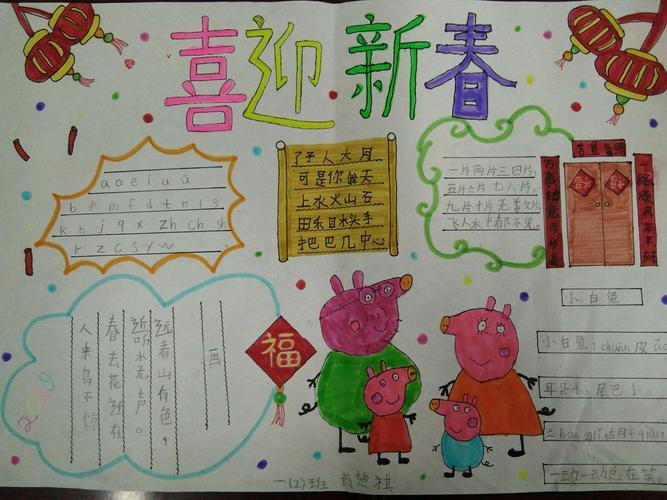 喜迎新春
aoeiuü
bpmfdtnlg
khjqxzhchsh
rzcsyw
了子人大月
可是你我天
上水火山石
田禾目木头手
把巴几中心
一片两片三四片,
五片六片七八片。
九片十片无数片,
飞入水中都不见。
吉星高照
万事如意步步高
一路顺风年年好
福
画
远看山有色,
近听水无声。
春去花还在
人来鸟不惊
2019
小白兔
小白兔,chuān 皮
耳朵长,尾巴小。
一动一动
一(2)班